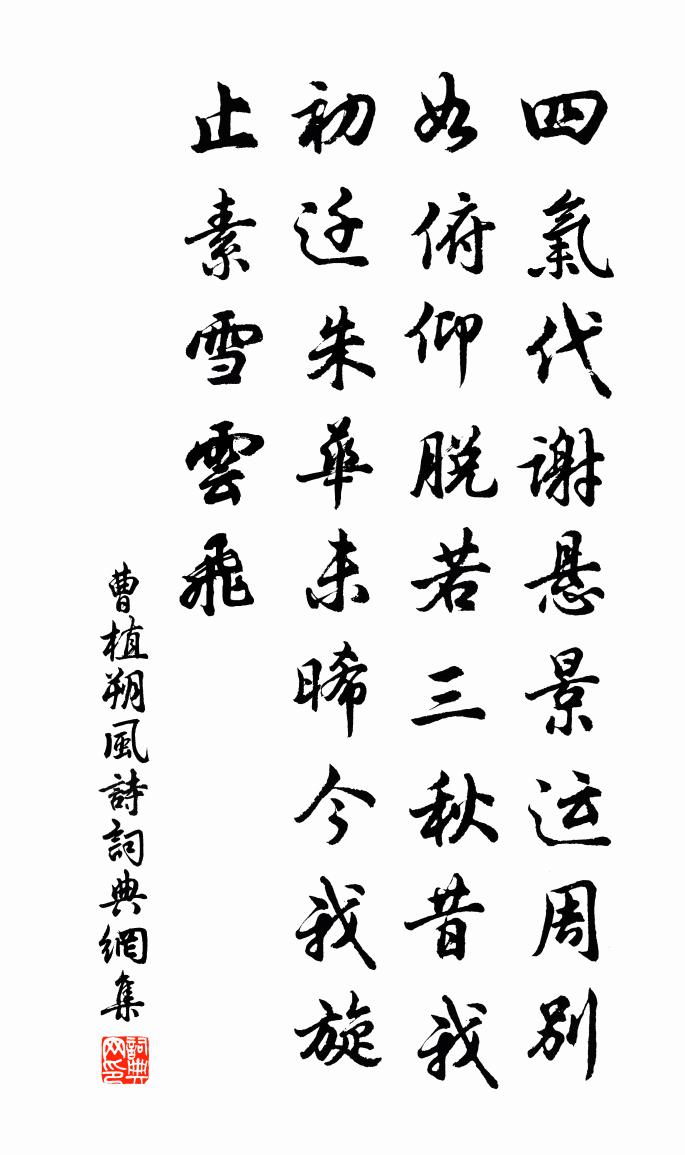 四氣代謝悬景运周别
如俯仰脱若三秋昔我
初迁朱華未晞今我旋
止素雪雲飛
曹植朔風詩詞典網集
詞典网印